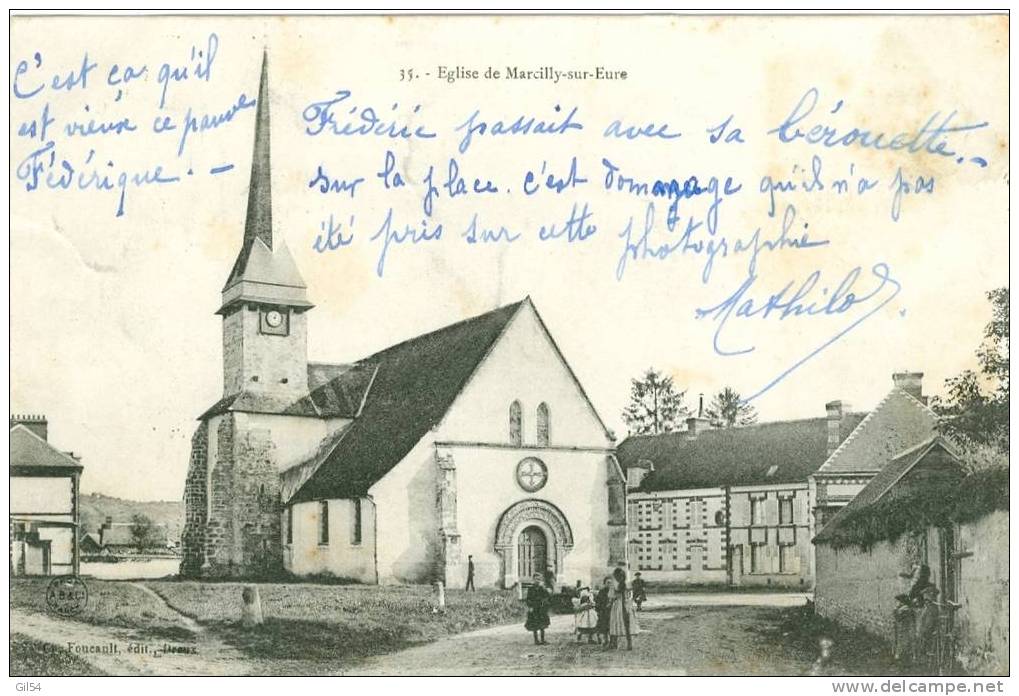 35. - Eglise de Marcilly-sur-Eure
C'est ça qu'il
est vieux ce pauvre
Fédérique. -
Frédéric passait avec sa bérouette. -
sur la place. c'est domazage qu'il n'a pas
été pris sur cette photographie
Mathilde.
A.B.&C.
Foucault, édit., Dreux
Gil54
http://www.delcampe.net